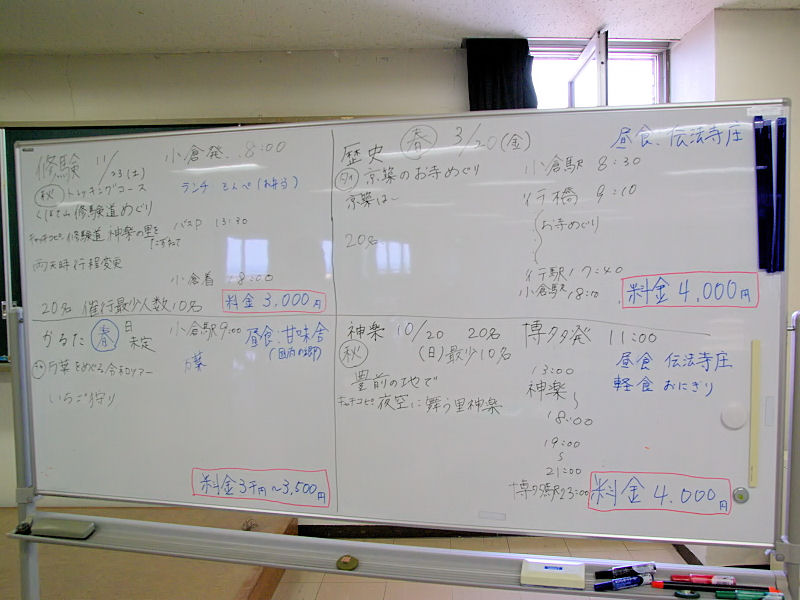 修験 11/23(土) 小倉発 8:00
秋 トレッキングコース ランチ とんぺ(お弁当)
くぼて山 修験道めぐり
キャッチコピー 修験道 神楽の里をたずねて バス 13:30
雨天時 行程変更
小倉着 18:00
20名 催行最少人数10名 料金 3,000円
歴史 春 3/20(金) 昼食、伝法寺庄
京築のお寺めぐり 小倉駅 8:30
京築は〜 行橋 9:10
お寺めぐり
20名
行駅 17:40
小倉駅 18:10 料金 4,000円
かるた 春 日未定 小倉駅 9:00 昼食:甘味舎
万葉をめぐる令和ツアー 万葉
いちご狩り
料金 3千円〜3,500円
神楽 10/20 20名 博多発 11:00
秋 (日) 最少10名 昼食 伝法寺庄
13:00 軽食 おにぎり
豊前の地で 神楽
キャッチコピー 夜空に舞う里神楽 18:00
19:00
21:00
博多駅 23:00 料金 4,000円